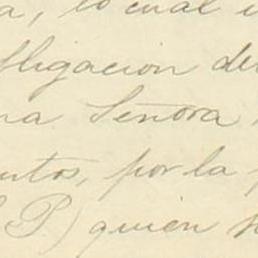 a, lo cual
bligacion de
na Señora
ntos, por la
P.) quien